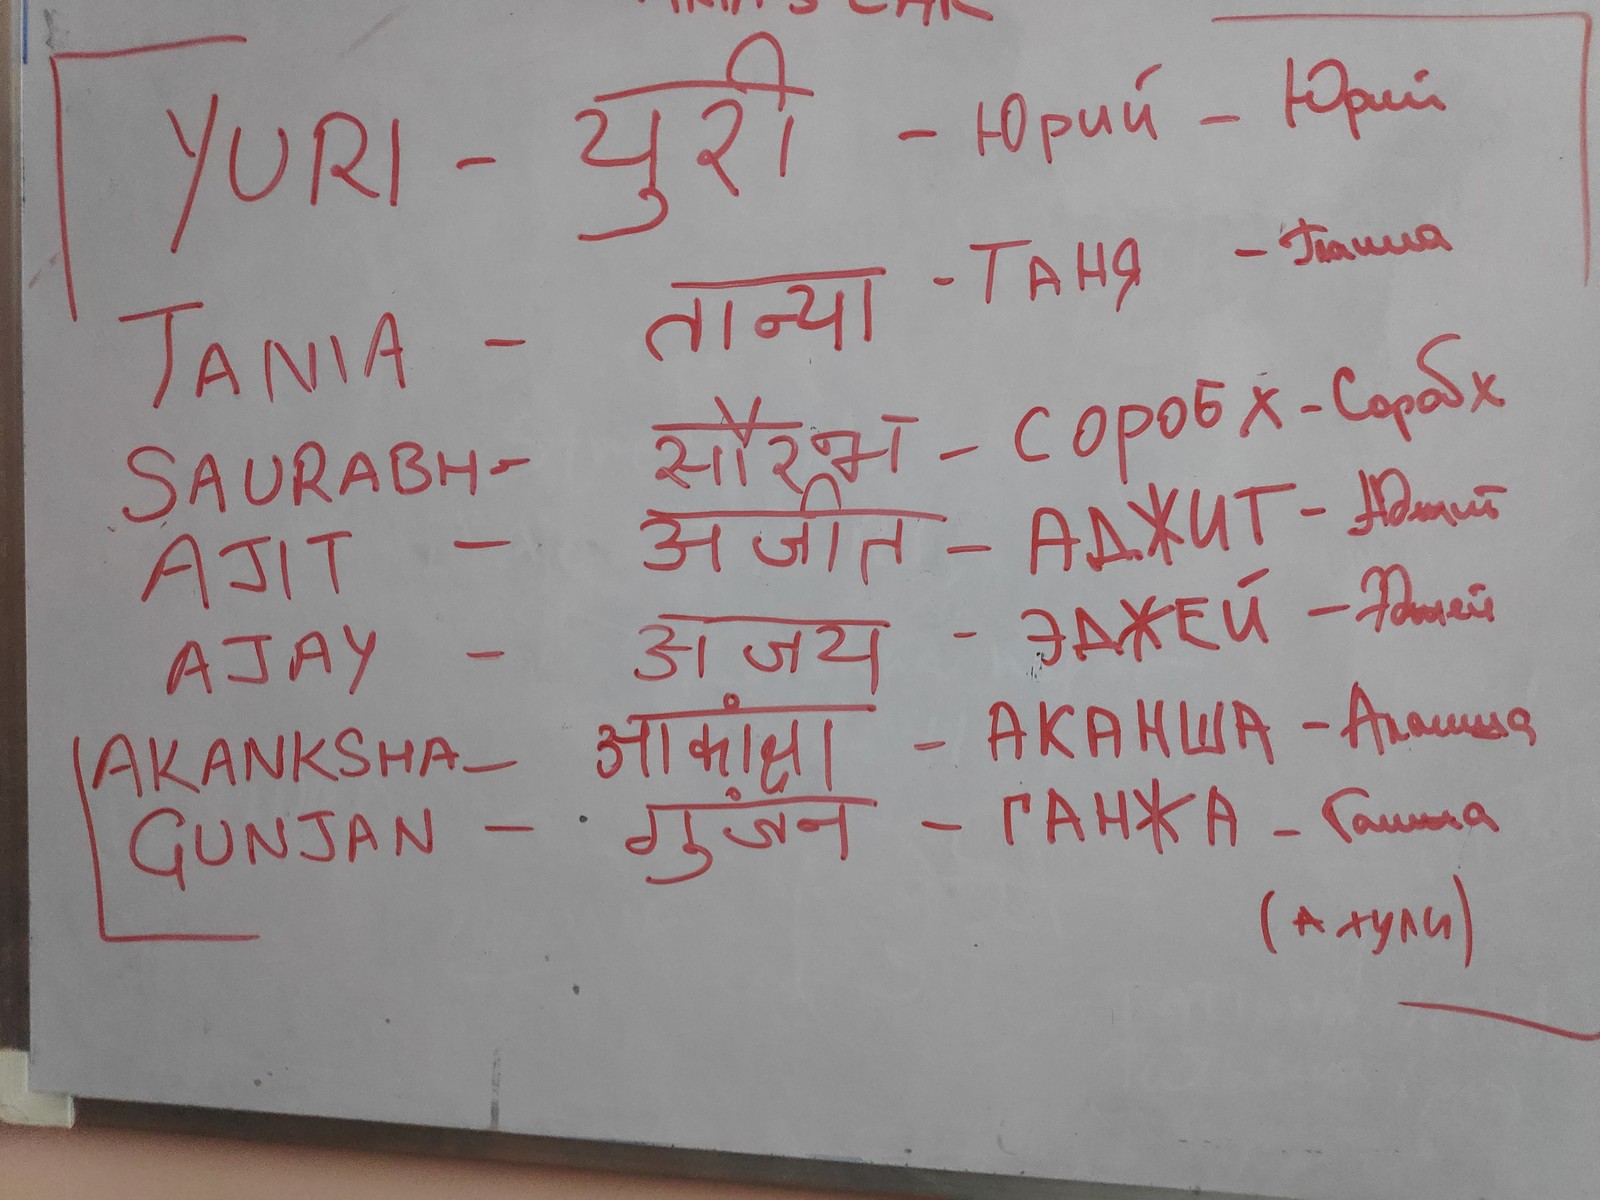 YURI - युरी - Юрий - Юрий
TANIA - तान्या - ТАНЯ - Таня
SAURABH - सौरभ - СОРОБХ - Сорабх
AJIT - अजीत - АДЖИТ - Аджит
AJAY - अजय - ЭДЖЕЙ - Эджей
AKANKSHA - आकांक्षा - АКАНША - Аканша
GUNJAN - गुंजन - ГАНЖА - Ганжа